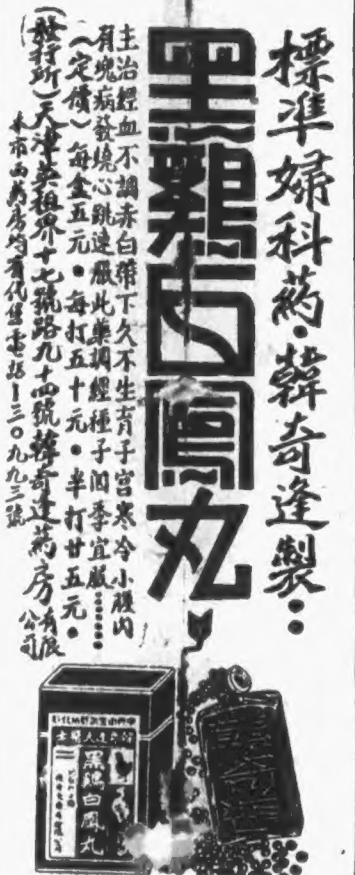 標準婦科葯・韓奇逢製：
黑鷄白鳳丸
主治經血不調赤白帶下久不生育子宮寒冷小腹內
有塊病發燒心跳速服此藥調經種子季宜服……
（定價）每盒五元・每打五十元・半打廿五元・
（發行所）天津英租界十七號路九十四號韓奇逢葯房有限公司
本市西葯房均有代售電話｜三〇九九三號
黑鷄白鳳丸